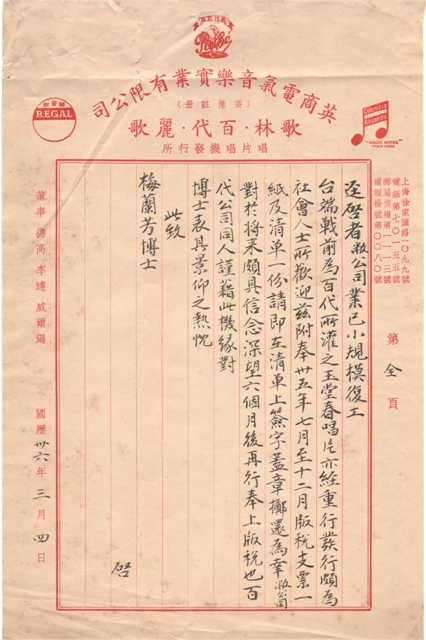 Pathé
英商電氣音樂實業有限公司
（香港註冊）
歌林·百代·麗歌
唱片唱機發行所
REGAL
Columbia
Records
"MAGIC NOTES"
TRADE MARK
上海徐家匯路一〇九九號
電話第七〇一五五號
郵局信箱第一一一三號
電報掛號第〇〇八〇號
第全頁
逕啓者敝公司業已小規模復工
台端戰前為百代所灌之玉堂春唱片亦経重行發行頗為
社會人士所歡迎茲附奉卅五年七月至十二月版稅支票一
紙及清单一份請即在清单上簽字蓋章擲還為幸敝公司
對於将来頗具信念深望六個月後再行奉上版稅也百
代公司同人謹藉此機缘對
博士表具景仰之熱忱
此致
梅蘭芳博士
啓
董事 德高 李達 威爾遜
國曆卅六年三月四日